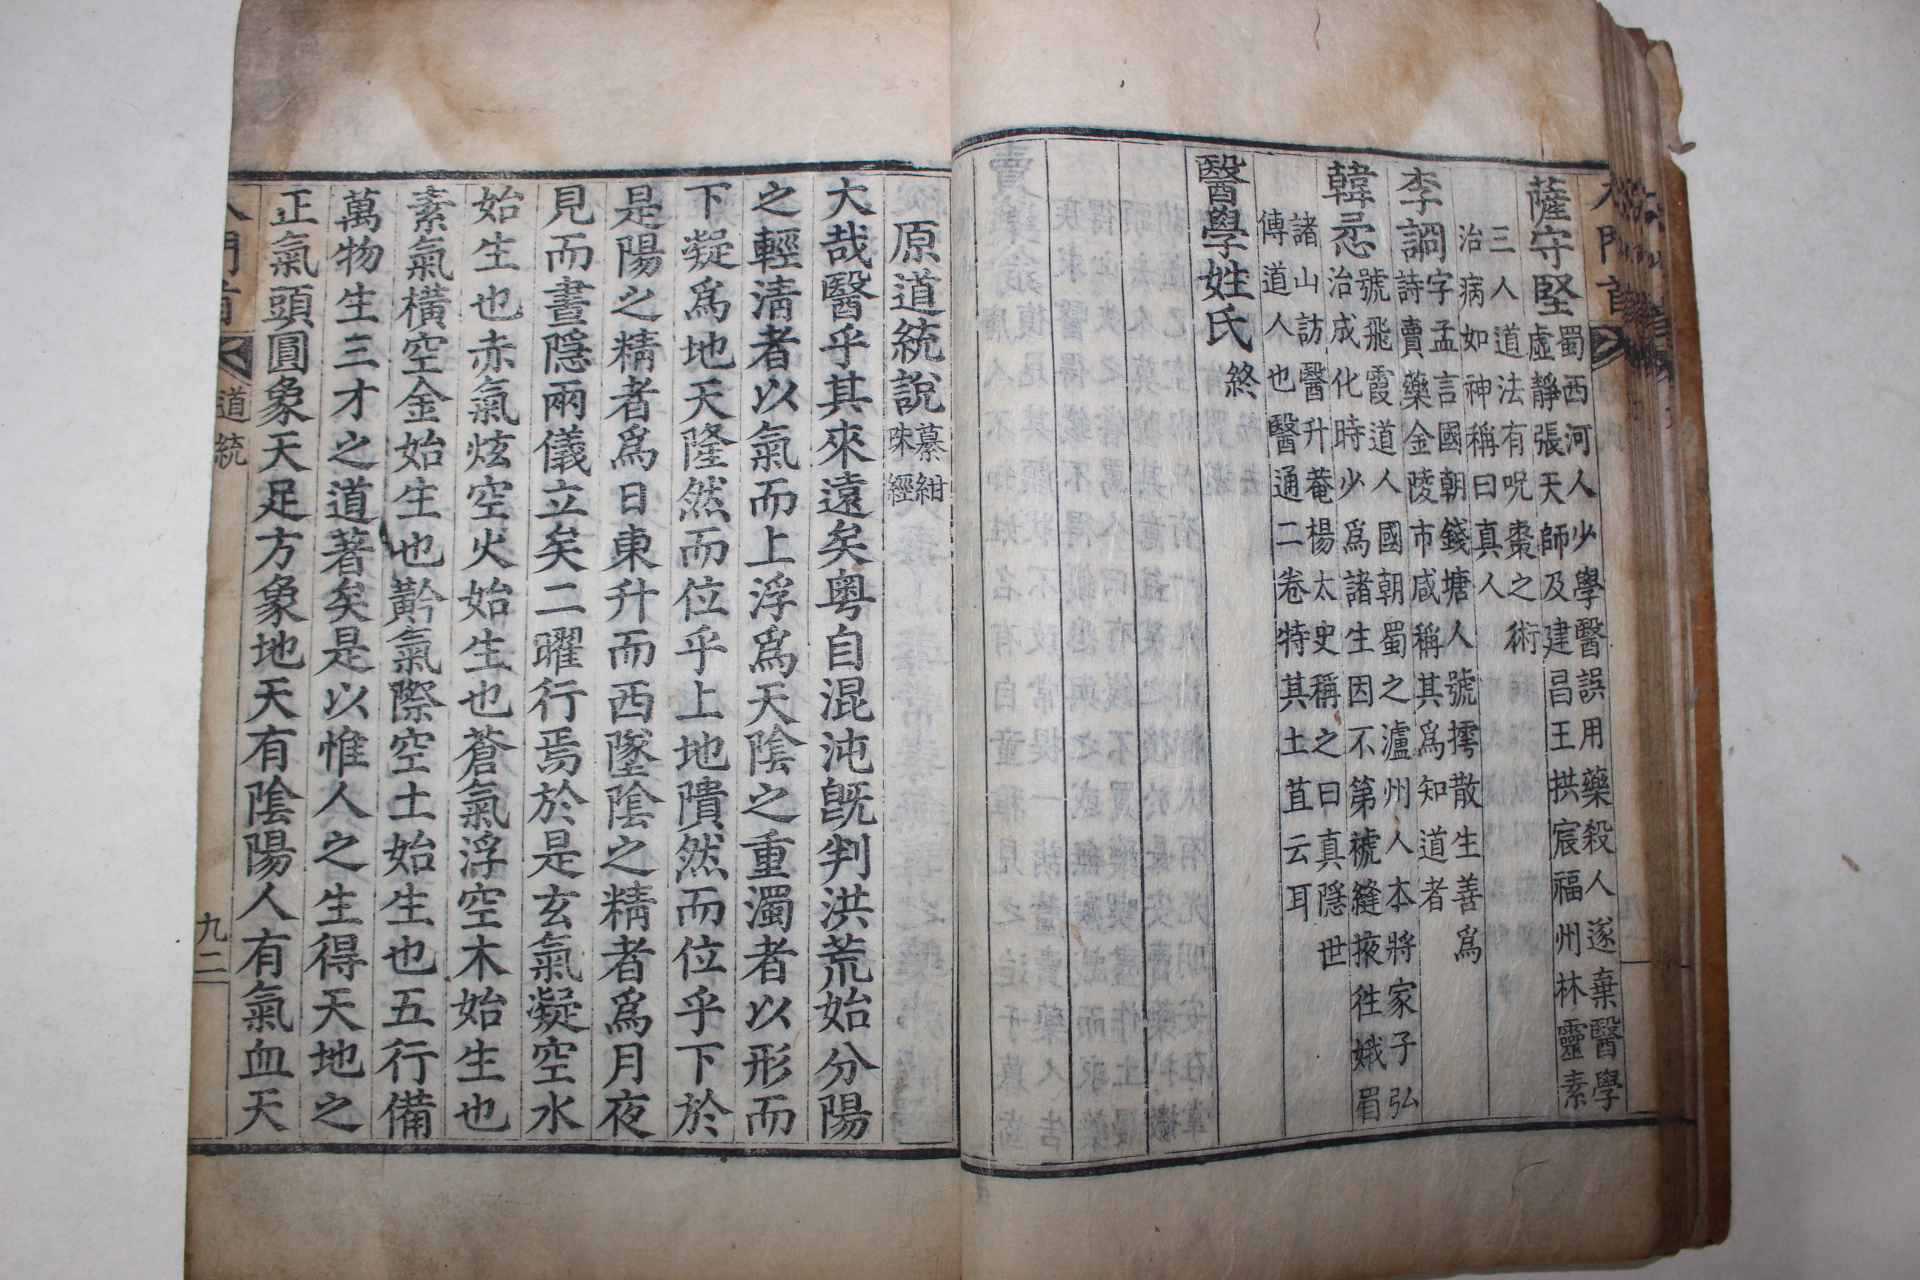 薩守堅 蜀西河人少學醫誤用藥殺人遂棄醫學
虛靜張天師及建昌王拱宸福州林靈素
三人道法有呪棗之術
治病如神稱曰真人
李詗 字孟言國朝錢塘人號樗散生善爲
詩賣藥金陵市咸稱其爲知道者
韓㤅 號飛霞道人國朝蜀之瀘州人本將家子弘
治成化時少爲諸生因不第褫縫掖徃娥眉
諸山訪醫升菴楊太史稱之曰真隱世
傳道人也醫通二卷特其土苴云耳
醫學姓氏 終
原道統說 纂紺
珠經
大哉醫乎其來遠矣粤自混沌旣判洪荒始分陽
之輕清者以氣而上浮爲天陰之重濁者以形而
下凝爲地天隆然而位乎上地隤然而位乎下於
是陽之精者爲日東升而西墜陰之精者爲月夜
見而晝隱兩儀立矣二曜行焉於是玄氣凝空水
始生也赤氣炫空火始生也蒼氣浮空木始生也
素氣橫空金始生也黅氣際空土始生也五行備
萬物生三才之道著矣是以惟人之生得天地之
正氣頭圓象天足方象地天有陰陽人有氣血天
入門首 道統 九二